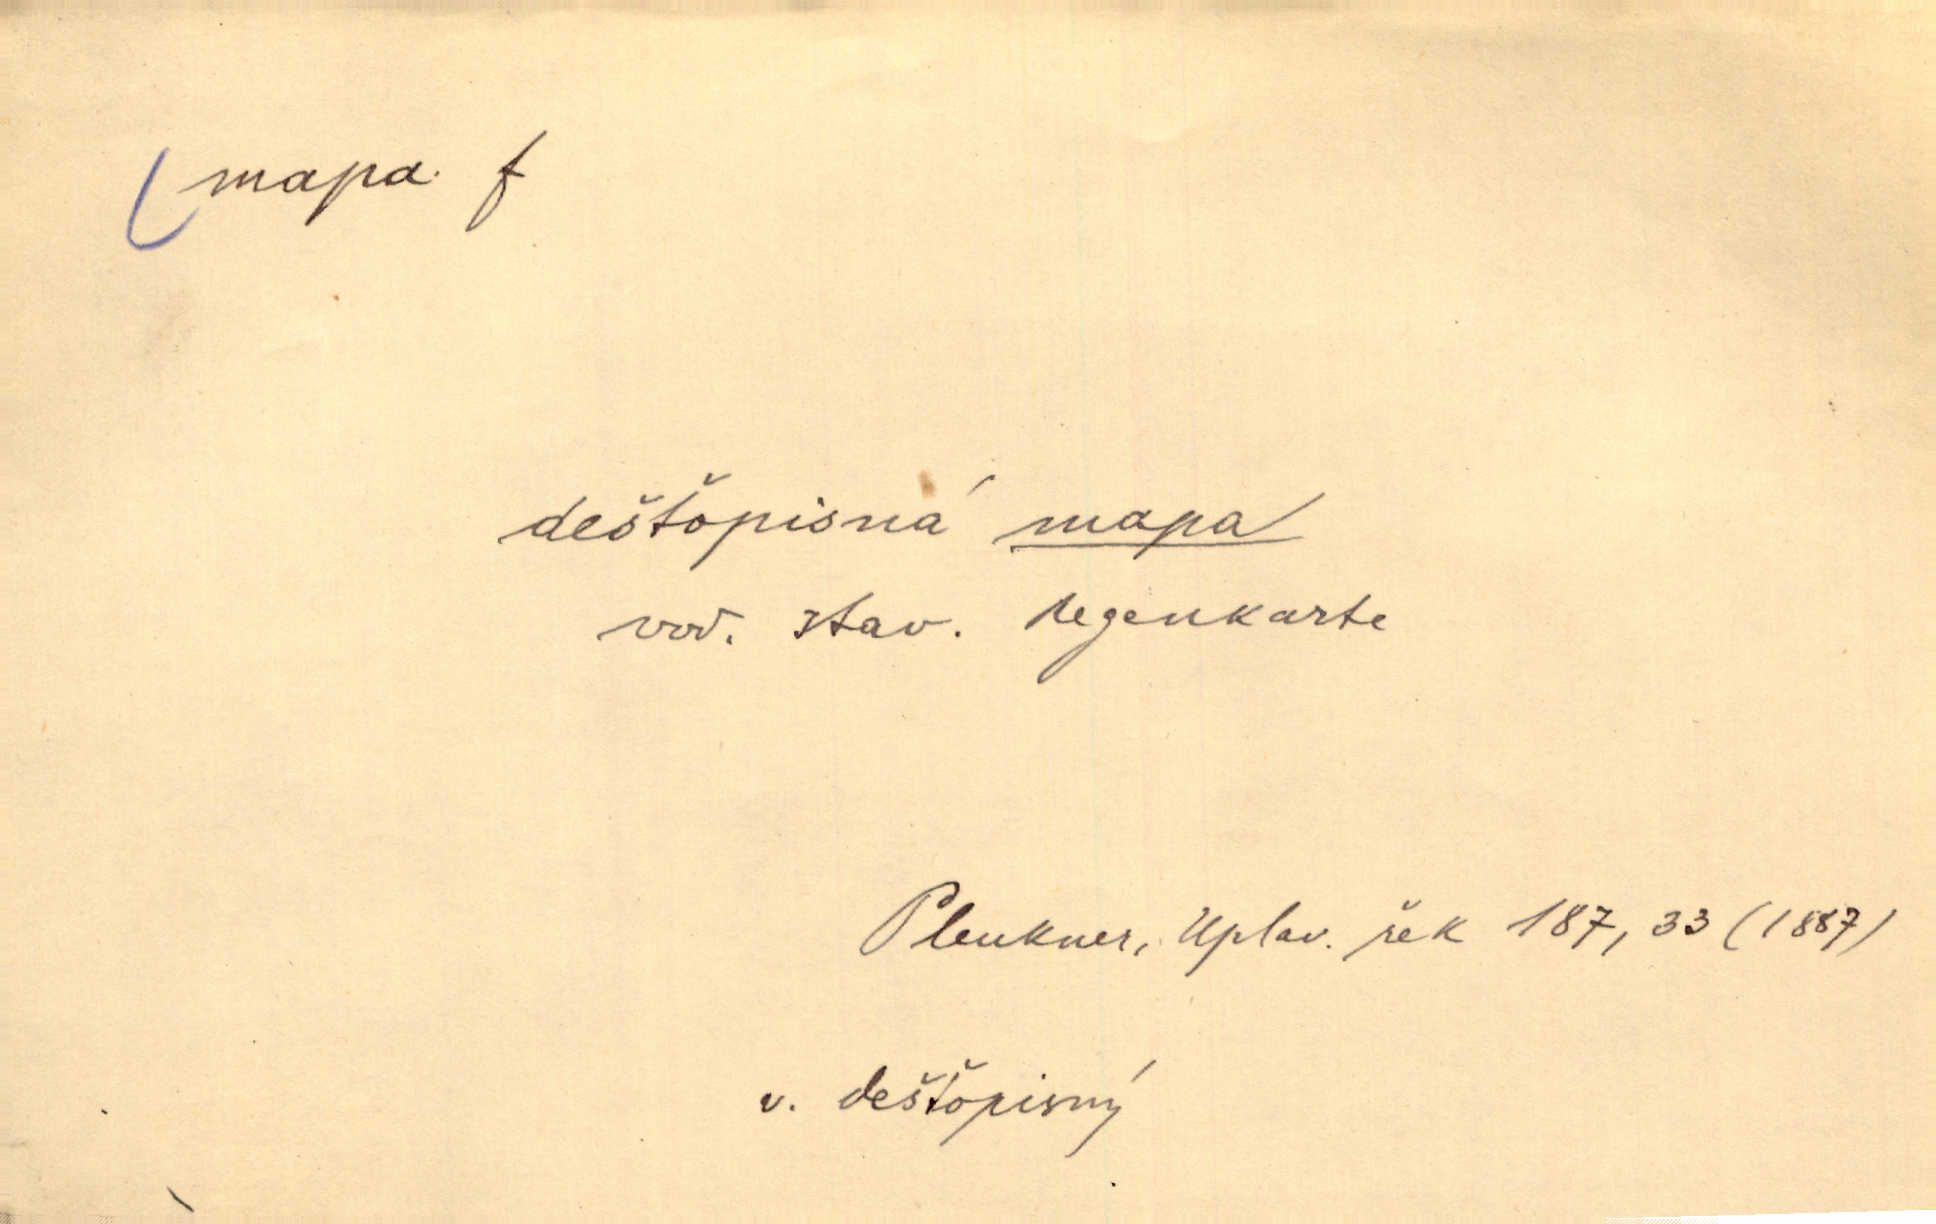 mapa f
dešťopisná mapa
vod. stav. Regenkarte
Plenkner, Uplav. řek 187, 33 (1887)
v. dešťopisný